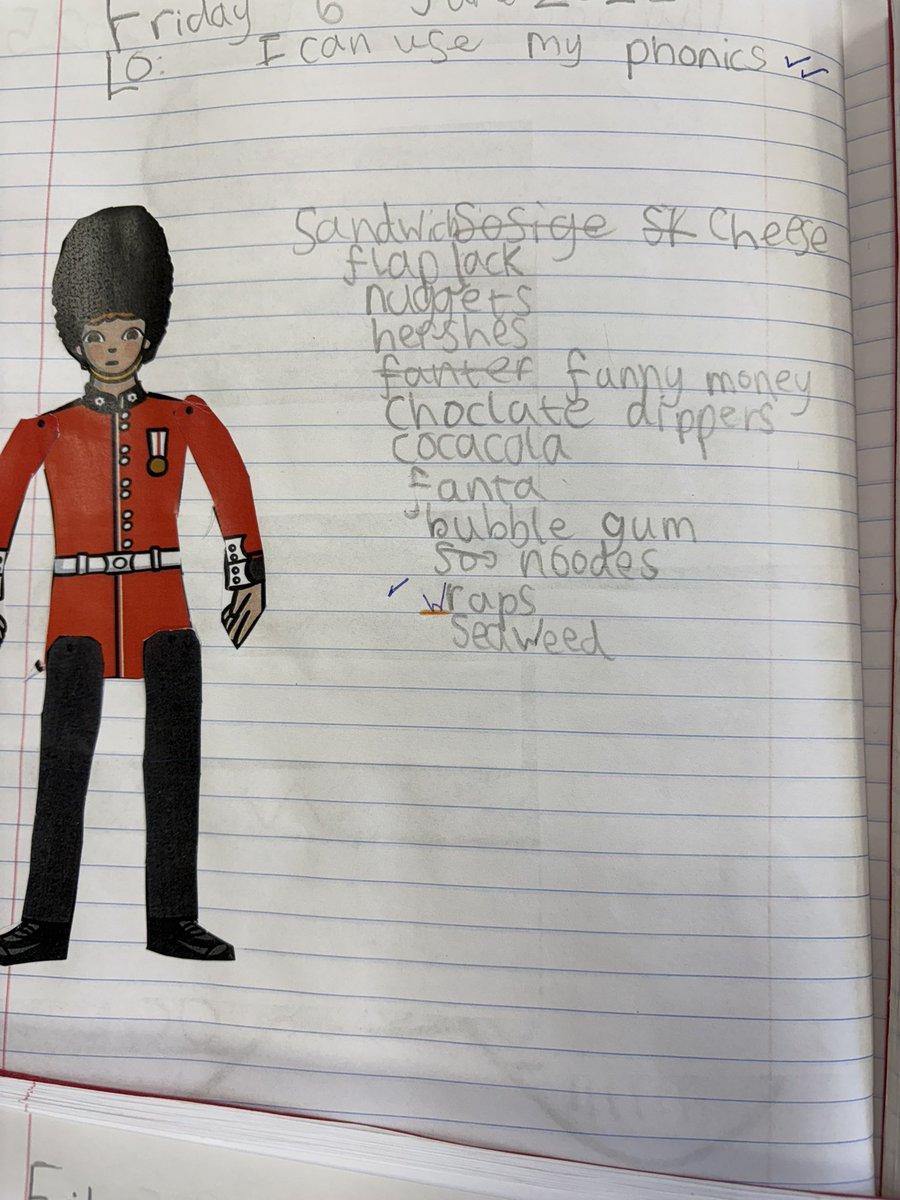 Friday 6
LO: I can use my phonics
Sandwich Sosige St Cheese
flap jack
nuggets
hershes
fanter funny money
choclate dippers
cocacola
fanta
bubble gum
soo noodes
wraps
seaweed